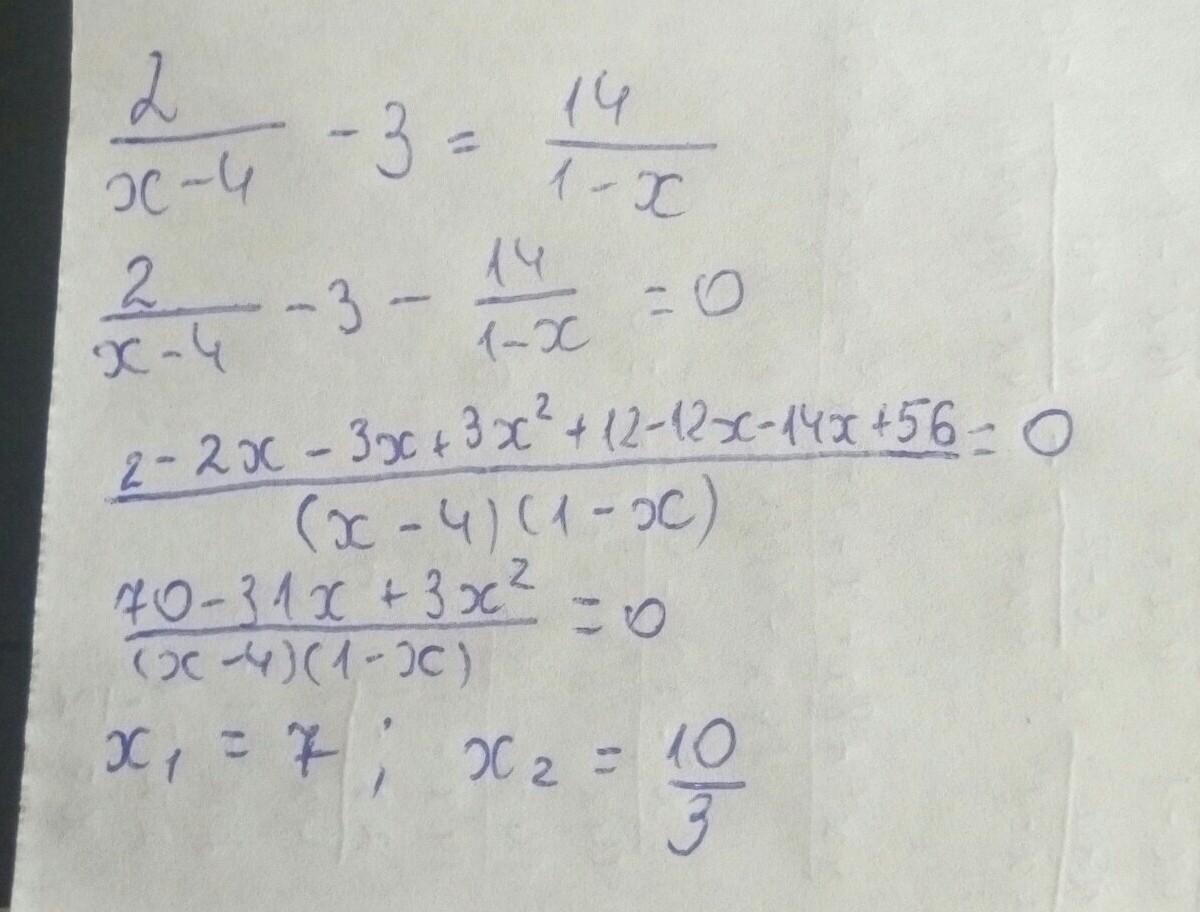 2/(x-4) - 3 = 14/(1-x)
2/(x-4) - 3 - 14/(1-x) = 0
(2-2x-3x+3x²+12-12x-14x+56)/((x-4)(1-x)) = 0
(70-31x+3x²)/((x-4)(1-x)) = 0
x₁ = 7; x₂ = 10/3